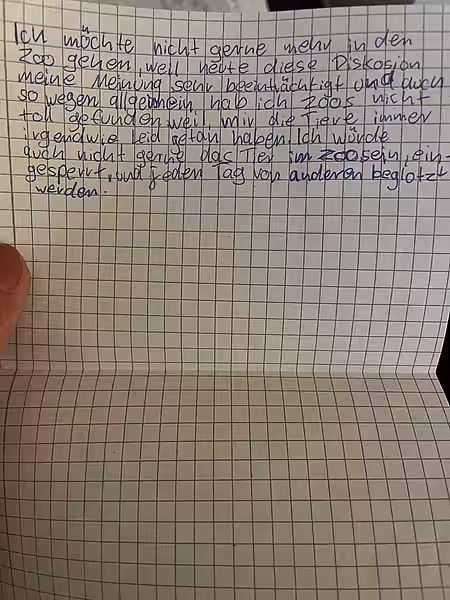 Ich möchte nicht gerne mehr in den
Zoo gehen, weil heute diese Diskosion
meine Meinung sehr beeinträchtigt und auch
so wegen allgemein, hab ich Zoos nicht
toll gefunden weil, mir die Tiere immer
irgendwie Leid getan haben. Ich würde
auch nicht gerne das Tier im Zoo sein, ein-
gesperrt, und jeden Tag von anderen beglotzt
werden.